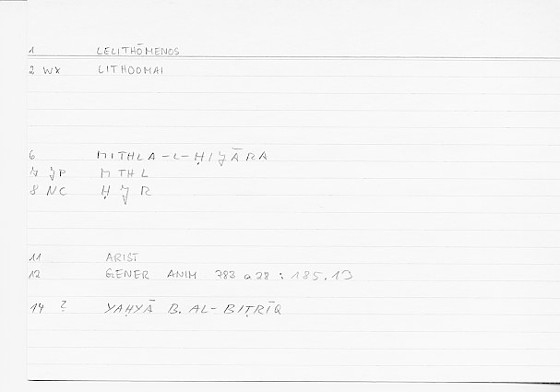 1 LELITHŌMENOS
2 WX LITHOOMAI
6 MITHLA-L-ḤIJĀRA
7 JP MTHL
8 NC ḤJR
11 ARIST
12 GENER ANIM 783 a 28 : 185.13
14 ? YAḤYĀ B. AL-BIṬRĪQ